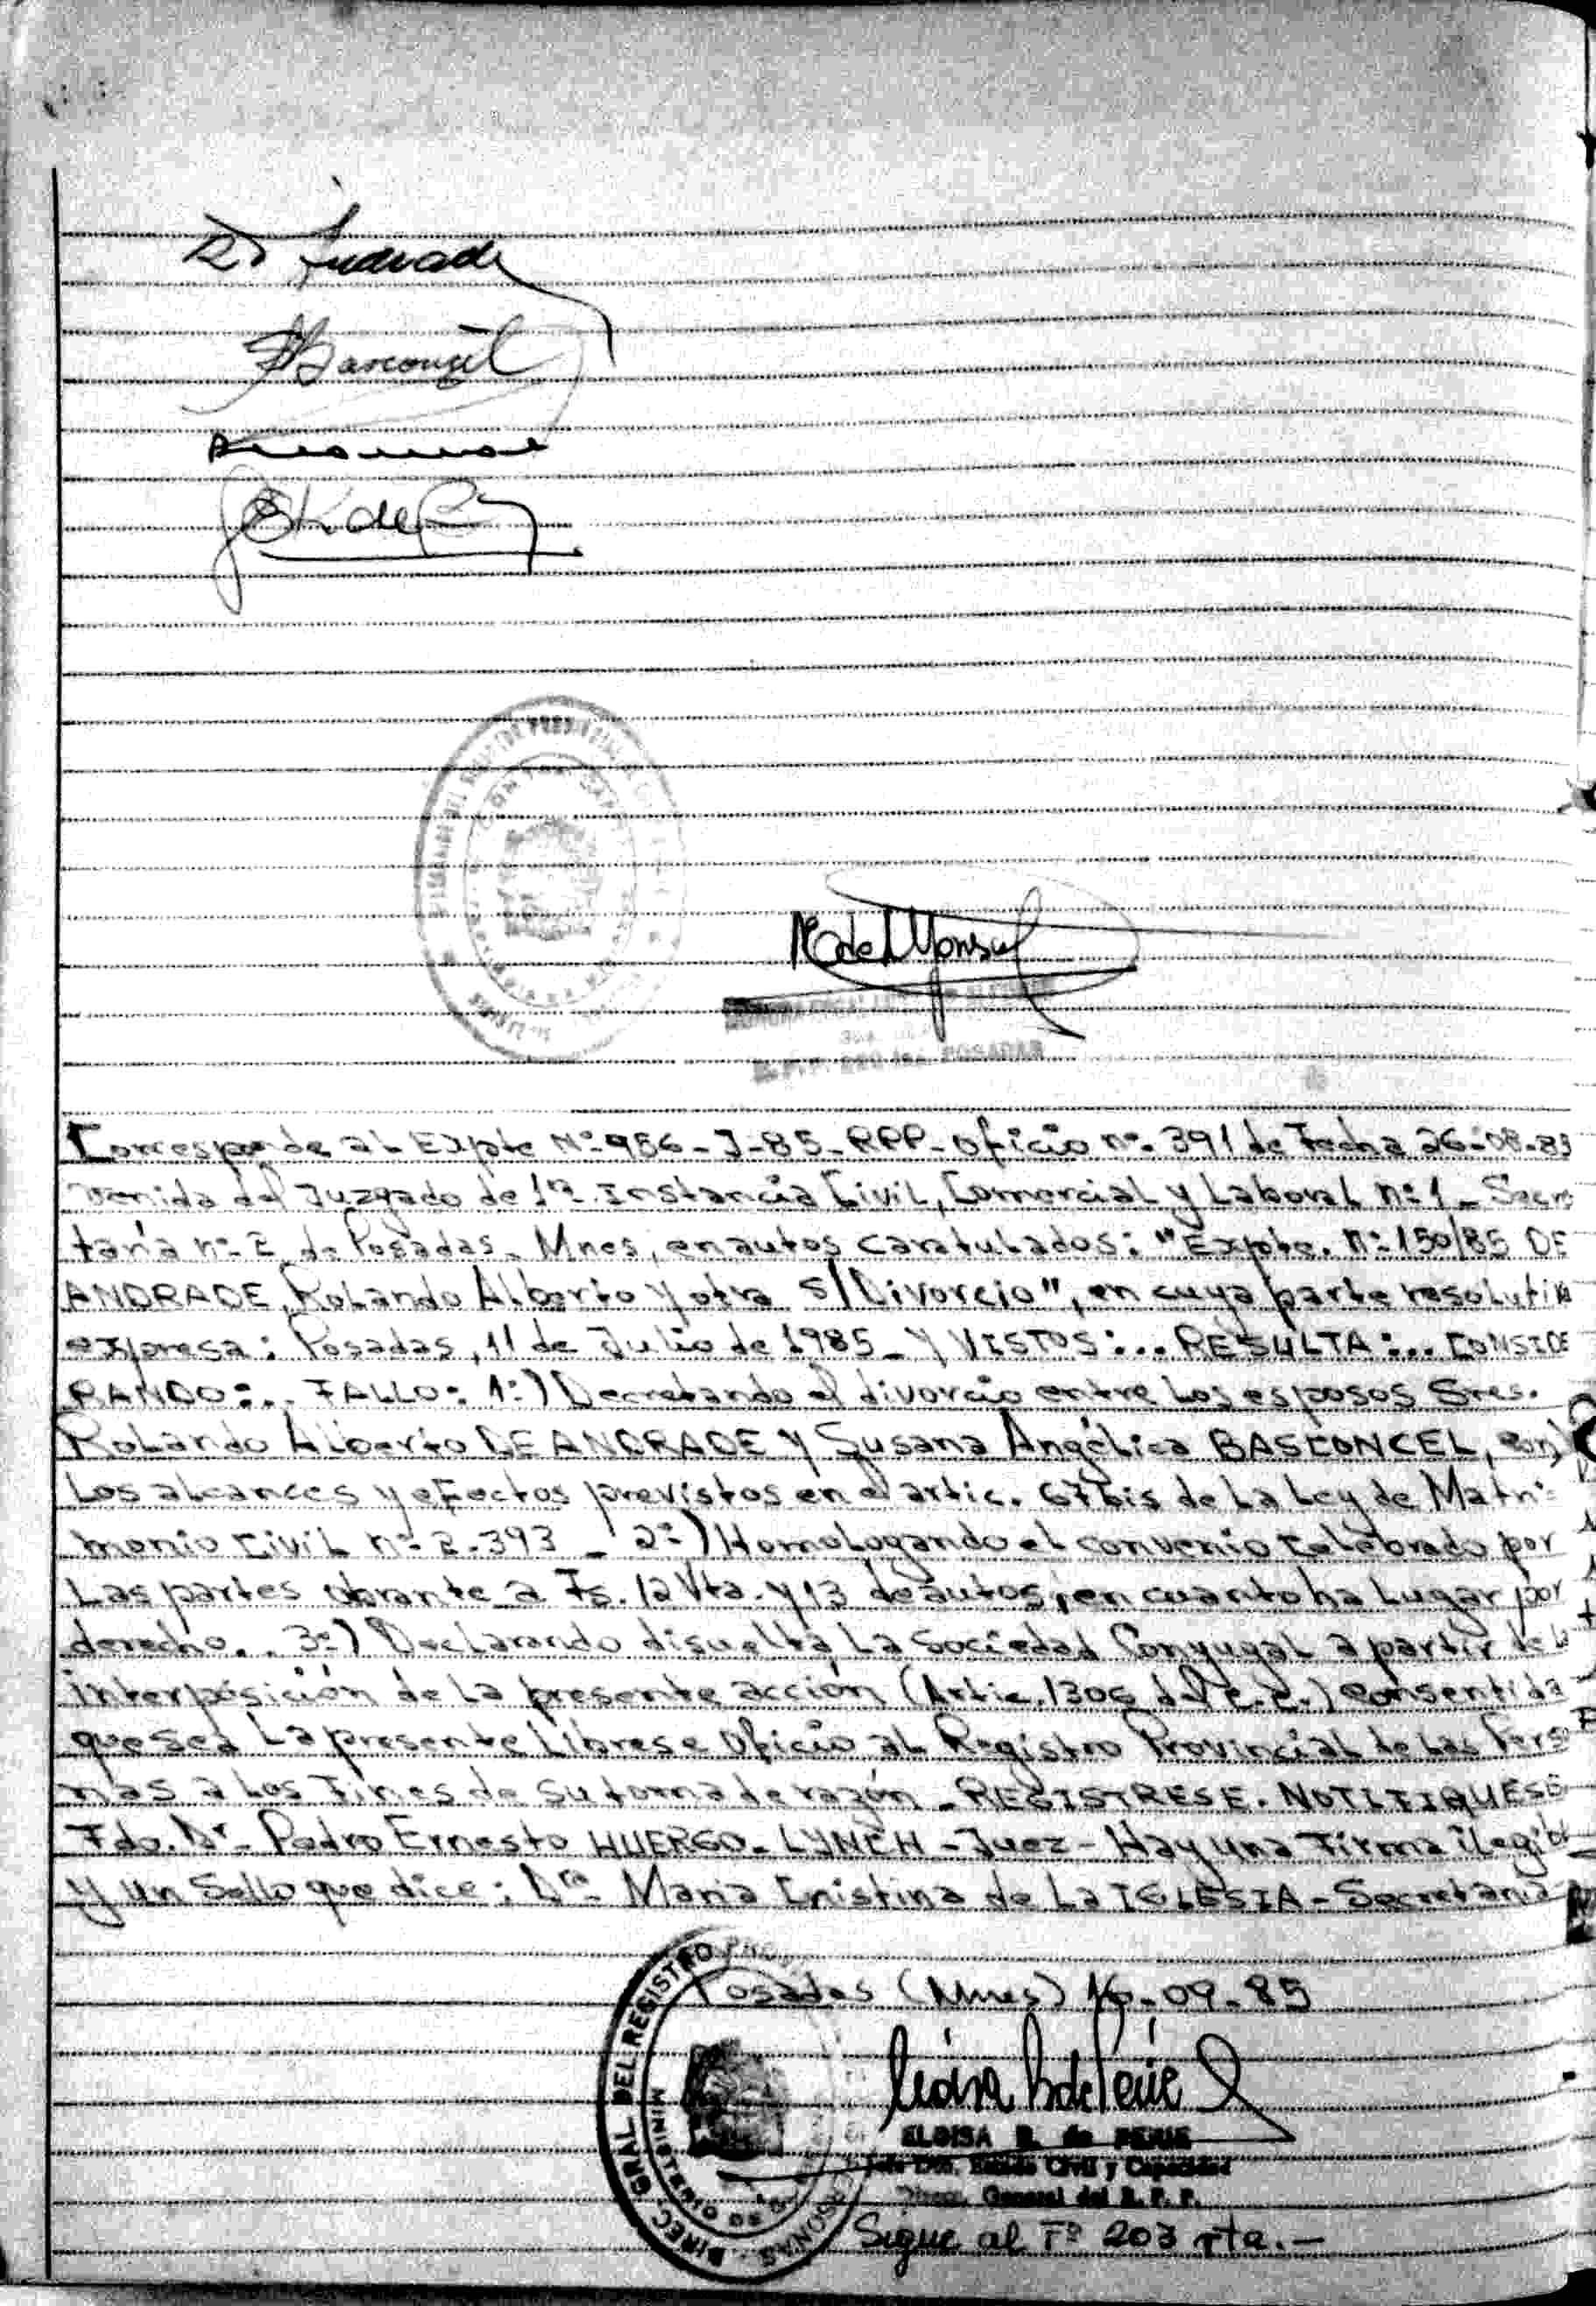 Andrade
Basconcel
Corresponde al Expte Nº 956-J-85-RPP-Oficio nº 391 de Fecha 26-08-85
venida del Juzgado de 1ra Instancia Civil, Comercial y Laboral nº 1 - Secre
taría nº 2 de Posadas - Mnes, en autos caratulados: "Expte. nº 150/85 DE
ANDRADE, Rolando Alberto y otra S/Divorcio", en cuya parte resolutiva
expresa: Posadas, 11 de Julio de 1985 - Y VISTOS:... RESULTA:... CONSIDE
RANDO:.. FALLO: 1º) Decretando el divorcio entre los esposos Sres.
Rolando Alberto DE ANDRADE y Susana Angélica BASCONCEL, con
los alcances y efectos previstos en el artic. 67 bis de la Ley de Matri-
monio Civil nº 2.393 - 2º) Homologando el convenio celebrado por
las partes obrante a Fs. 12 Vta. y 13 de autos, en cuanto ha lugar por
derecho.. 3º) Declarando disuelta la Sociedad Conyugal a partir de la
interposición de la presente acción (Artic. 1306 del C.C.) Consentida
que sea la presente Librese Oficio al Registro Provincial de las Perso
nas a los Fines de su toma de razón - REGISTRESE. NOTIFIQUESE
Fdo. Dr. Pedro Ernesto HUERGO-LYNCH - Juez - Hay una Firma ilegible
y un Sello que dice: Dra. Maria Cristina de la IGLESIA - Secretaria
Posadas (Mnes) 16-09-85
DIREC. GRAL. DEL REGISTRO
ELOISA B. de
Estado Civil y Capacidad
General del R. P. P.
Sigue al Fº 203 pta.-